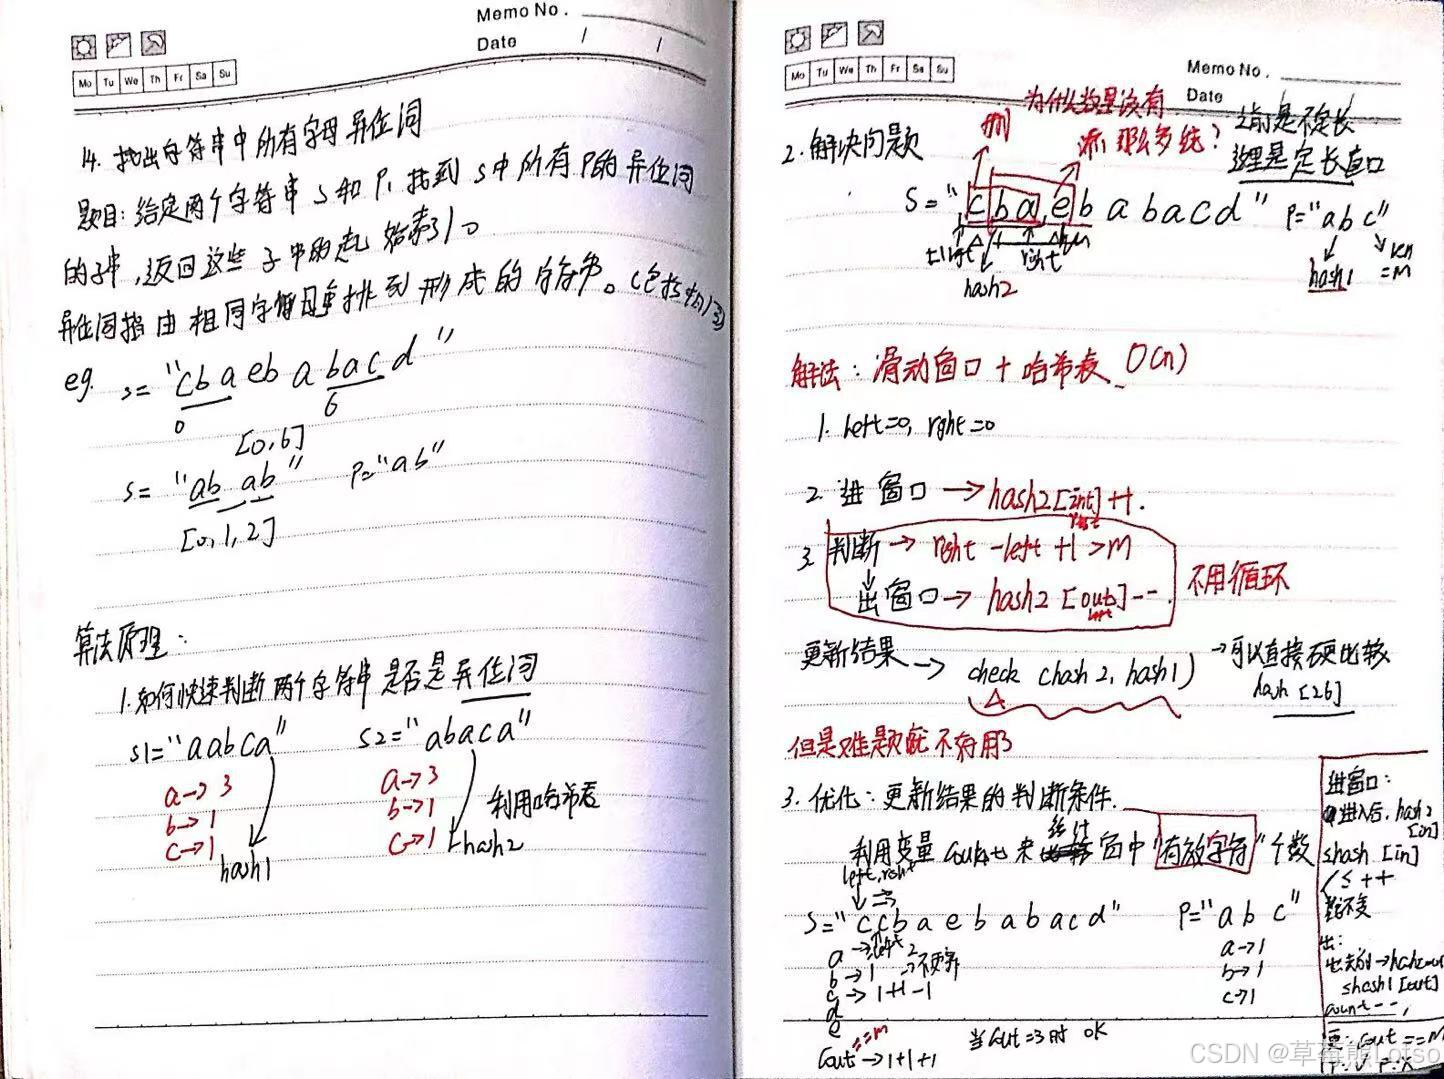 Memo No.
Date / /
Mo Tu We Th Fr Sa Su
14. 找出字符串中所有字母异位词
题目: 给定两个字符串 s 和 p, 找到 s 中所有 p 的异位词
的子串, 返回这些子串的起始索引。
异位词指由相同字母重排列形成的字符串。(包括相同)
eg. s= "cba eb a bacd"
0 6
[0,6]
s= "ab ab" p="ab"
[0,1,2]
算法原理:
1.如何快速判断两个字符串是否是异位词
s1="aabca" s2="abaca"
a→3 a→3
b→1 b→1 利用哈希表
c→1 c→1
hash1 hash2
Memo No.
Date
Mo Tu We Th Fr Sa Su
为什么这里没有
删 添 那么多统? 之前是不定长
2.解决问题 这里是定长窗口
S="cba,eb a bacd" P="abc"
left right
hash2 hash1 len=m
解法: 滑动窗口 + 哈希表 O(n)
1. left=0, right=0
2. 进窗口 → hash2[int]++.
right
3. 判断 → right - left +1 >m
出窗口 → hash2 [out]--. 不用循环
left
更新结果 → check (hash2, hash1) →可以直接硬比较
hash [26]
但是难题就不好用了
3. 优化: 更新结果的判断条件.
统计
利用变量 count 来 窗中"有效字符"个数
left, right
S="ccbaebabacd" P="abc"
a → 2 a→1
b → 1 →不更新 b→1
c → 1+1-1 c→1
d
e
==m
Cout →1+1+1 当Cout=3时 OK
进窗口:
进入后. hash2
[in]
≤hash [in]
++
不变
出:
≤hash1 [out]
count--,
Cout ==M
CSDN @草莓熊Lotso